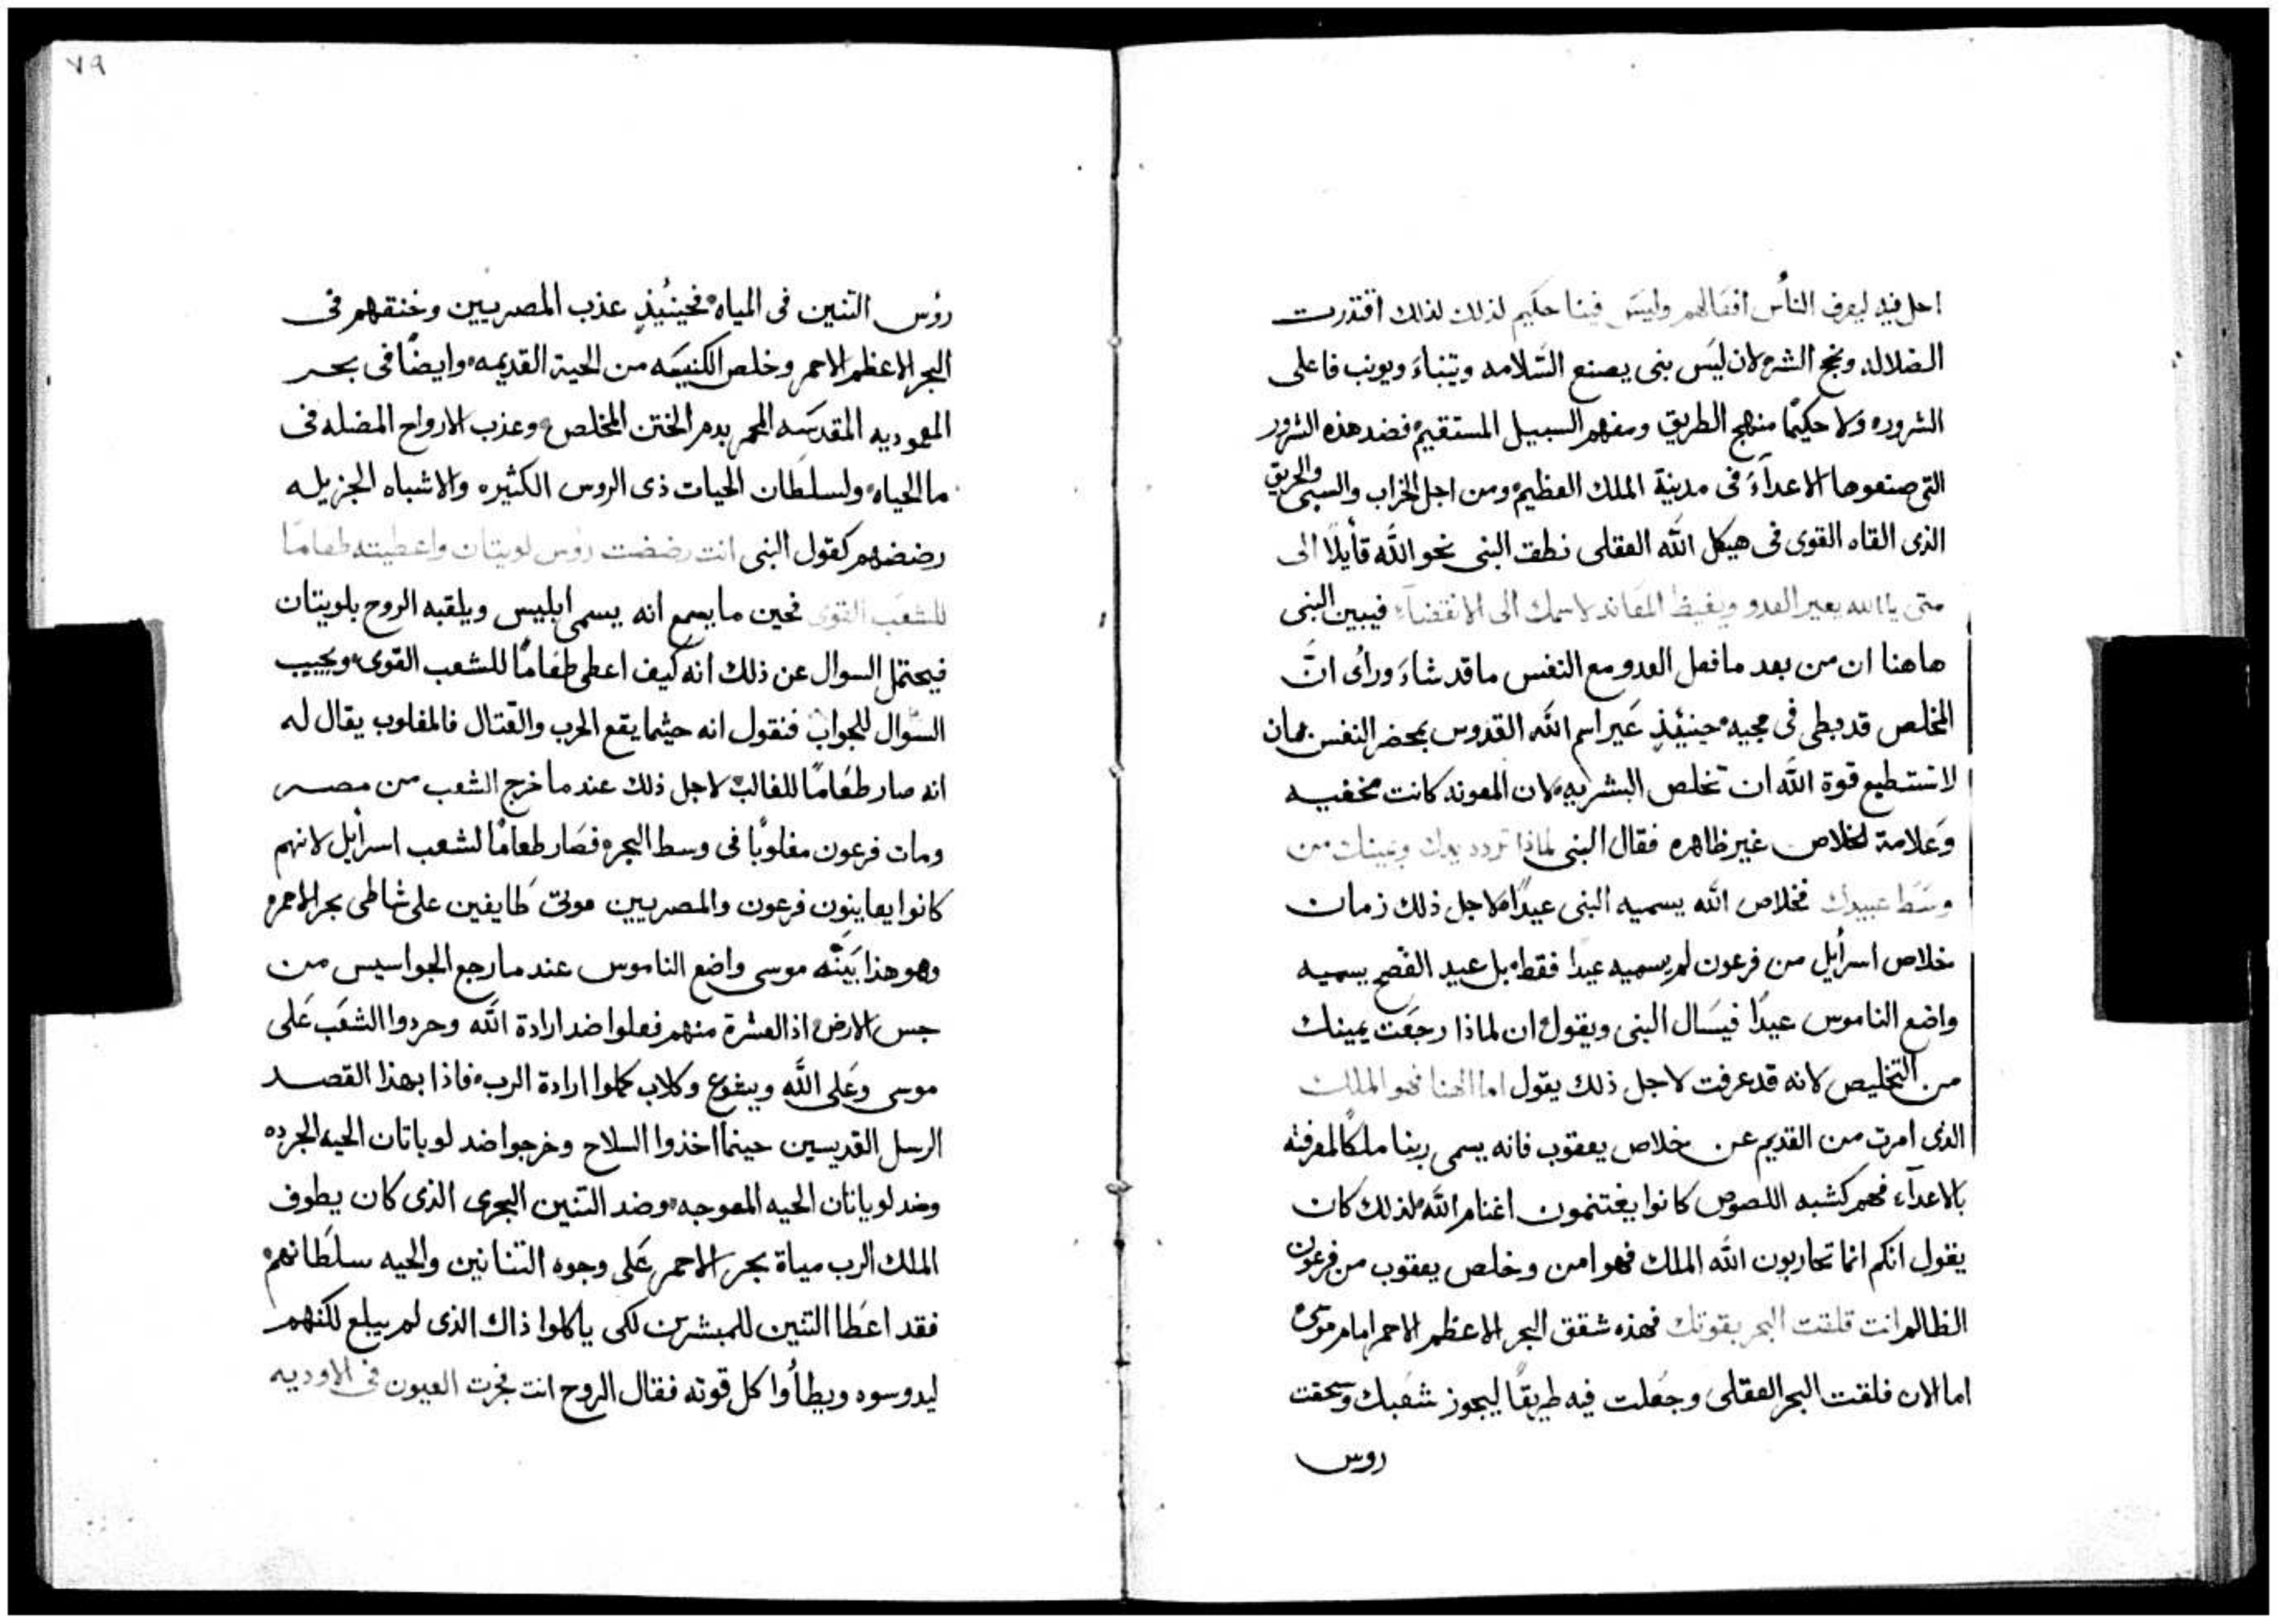 احل فيه ليعرف الناس افعالهم وليس فينا حكيم لذلك لذلك اقتدرت
الضلاله ونجح الشر لان ليس بنى يصنع السلامه ويتنباء ويونب فاعلى
الشروره ولا حكيمًا منهج الطريق ومفهم السبيل المستقيم فضد هذه الشرور
التى صنعوها الاعداء فى مدينة الملك العظيم ومن اجل الخراب والسبى والحريق
الذى القاه القوى فى هيكل الله العقلى نطق البنى نحو الله قايلًا الى
متى ياالله يعير العدو ويغيظ المعاند لاسمك الى الانقضاء فيبين البنى
هاهنا ان من بعد ما فعل العدو مع النفس ما قد شاء وراى انّ
المخلص قد بطى فى مجيه حينيذٍ عَير اسم الله القدوس بمحضر النفس بمان
لا تستطيع قوة الله ان تخلص البشريه لان المعونه كانت مخفيه
وعلامة الخلاص غير ظاهره فقال البنى لماذا تردد يدك ويمينك من
وسَط عبيدك فخلاص الله يسميه البنى عيدًا لاجل ذلك زمان
خلاص اسرايل من فرعون لم يسميه عيدا فقط بل عيد الفصح يسميه
واضع الناموس عيدًا فيسَال البنى ويقول ان لماذا رجعَت يمينك
من التخليص لانه قد عرفت لاجل ذلك يقول اما الهنا فهو الملك
الذى امرت من القديم عن خلاص يعقوب فانه يسمى ربنا ملكًا لمعرفته
بالاعدآء فهم كشبه اللصوص كانوا يغتنمون اغنام الله لذلك كان
يقول انكم انما تحاربون الله الملك فهو امن وخلص يعقوب من فرعون
الظالم انت قلقت البحر بقوتك فهذه شقق البحر الاعظم الاحمر امام موسى
اما الان فلقت البحر العقلى وجعلت فيه طريقًا ليجوز شعبك وسحقت
روس
٧٩
روس التنين فى المياه فحينيذٍ عذب المصريين وخنقهم فى
البحر الاعظم الاحمر وخلص الكنيسَه من الحية القديمه وايضًا فى بحر
المعموديه المقدسَه المحمر بدم الختن المخلص وعذب الارواح المضله فى
ما الحياه ولسلطان الحيات ذى الروس الكثيره والاشباه الجزيله
رضضهم كقول البنى انت رضضت روس لويتان واعطيته طعامًا
للشعب القوى فحين ما يسمع انه يسمى ابليس ويلقبه الروح بلويتان
فيحتمل السوال عن ذلك انه كيف اعطى طعَامًا للشعب القوى ويجيب
السّوال للجواب فنقول انه حيثما يقع الحرب والقتال فالمغلوب يقال له
انه صار طعَامًا للغالب لاجل ذلك عندما خرج الشعب من مصر
ومات فرعون مغلوبًا فى وسط البحر فصَار طعامًا لشعب اسرايل لانهم
كانوا يعاينون فرعون والمصريين موتى طايفين على شاطى بحر الاحمر
وهو هذا بَينَّه موسى واضع الناموس عندما رجع الجواسيس من
جس الارض اذ العشرة منهم فعلوا ضد ارادة الله وحردوا الشعَب عَلى
موسى وعَلى الله ويشوع وكلاب كملوا ارادة الرب فاذا بهذا القصد
الرسل القديسين حينما اخذوا السلاح وخرجوا ضد لوياتان الحيه الجرده
وضد لوياتان الحيه المعوجه وضد التنين البحرى الذى كان يطوف
الملك الرب مياة بحر الاحمر عَلى وجوه التنانين والحيه سلطانهم
فقد اعطَا التنين للمبشرين لكى ياكلوا ذاك الذى لم يبلع لكنهم
ليدوسوه ويطأوا كل قوته فقال الروح انت فجرت العيون فى الاوديه